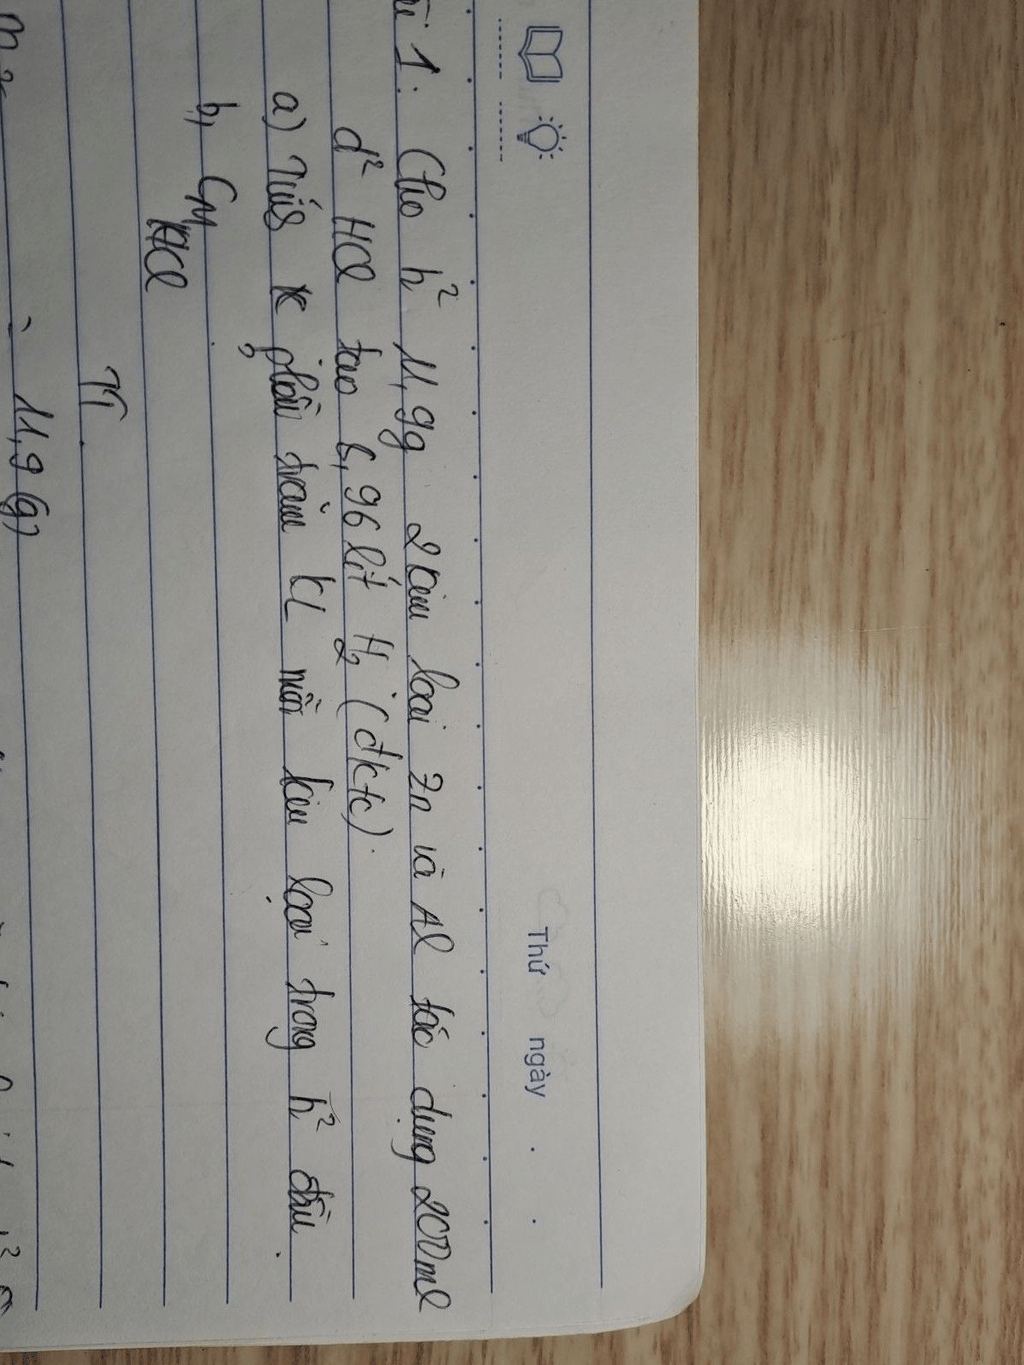 Thứ ngày
1. Cho h² 11,9g 2 kim loại Zn và Al tác dụng 200ml
d² HCl tạo 8,96 lít H₂ (đktc).
a) Tính phần trăm kl mỗi kim loại trong h² đầu.
b, CM HCl
TT
= 11,9 (g)